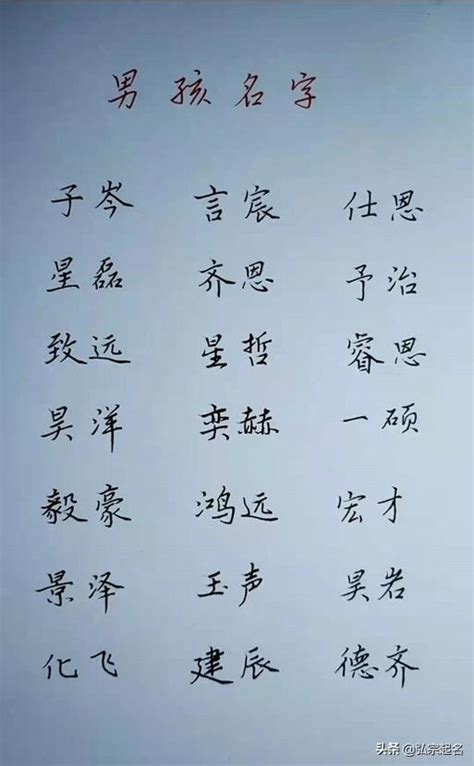 男孩名字
子岑 言宸 仕恩
星磊 齐恩 予治
致远 星哲 睿恩
昊洋 奕赫 一硕
毅豪 鸿远 宏才
景泽 玉声 昊岩
化飞 建辰 德齐
头条 @弘宗起名